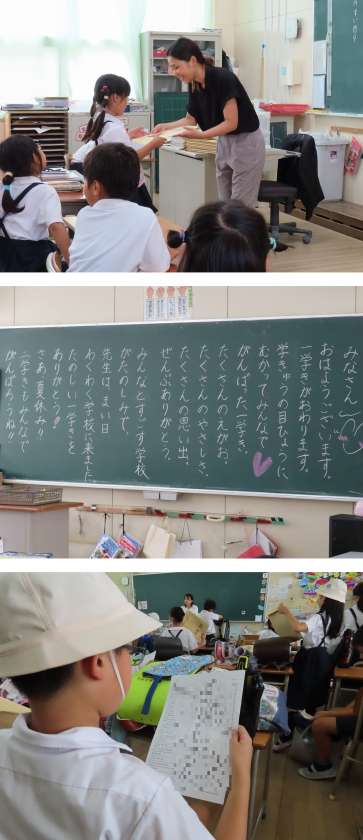 みなさん
おはようございます。
一学きがおわります。
学きゅうの目ひょうに
むかってみんなで
がんばった一学き。
たくさんのえがお、
たくさんのやさしさ、
たくさんの思い出、
ぜんぶありがとう。
みんなとすごす学校
がたのしみで、
先生は、まい日
わくわく学校に来ました。
たのしい一学きを
ありがとう!!
さあ、夏休み!!
二学きもみんなで
がんばろうね!!